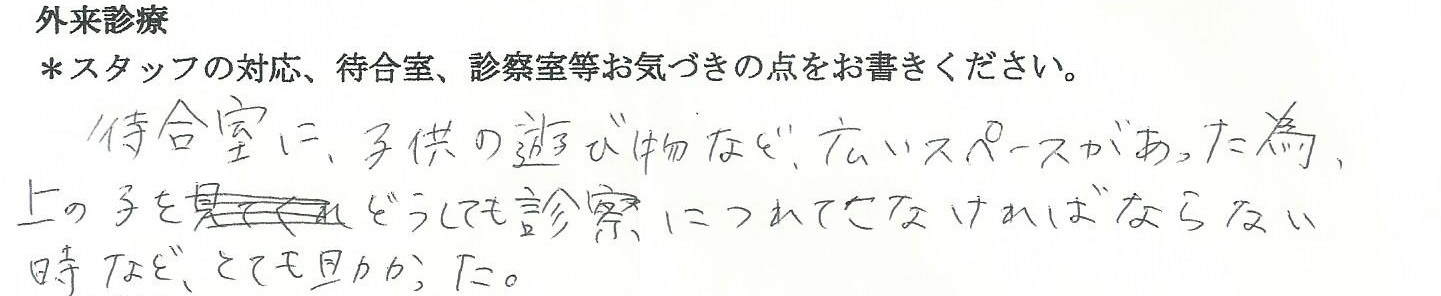 外来診療
＊スタッフの対応、待合室、診察室等お気づきの点をお書きください。
待合室に、子供の遊び物など、広いスペースがあった為、
上の子をどうしても診察につれてこなければならない
時など、とても助かった。